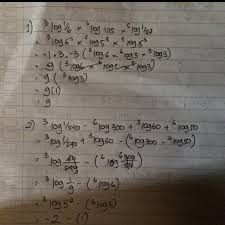 1) ³log 1/6 × ⁶log 125 × ⁵log 1/27
= ³log 6⁻¹ × ⁶log 5³ × ⁵log 3⁻³
= -1 × 3 × -3 (³log 6 × ⁶log 5 × ⁵log 3)
= 9 (³log 6 × ⁶log 5 × ⁵log 3)
= 9 (³log 3)
= 9 (1)
= 9
2) ³log 1/540 - ⁶log 300 + ³log 60 + ⁶log 50
= ³log 1/540 + ³log 60 - (⁶log 300 - ⁶log 50)
= ³log 60/540 - (⁶log 300/50)
= ³log 1/9 - (⁶log 6)
= ³log 3⁻² - (⁶log 6)
= -2 - (1)